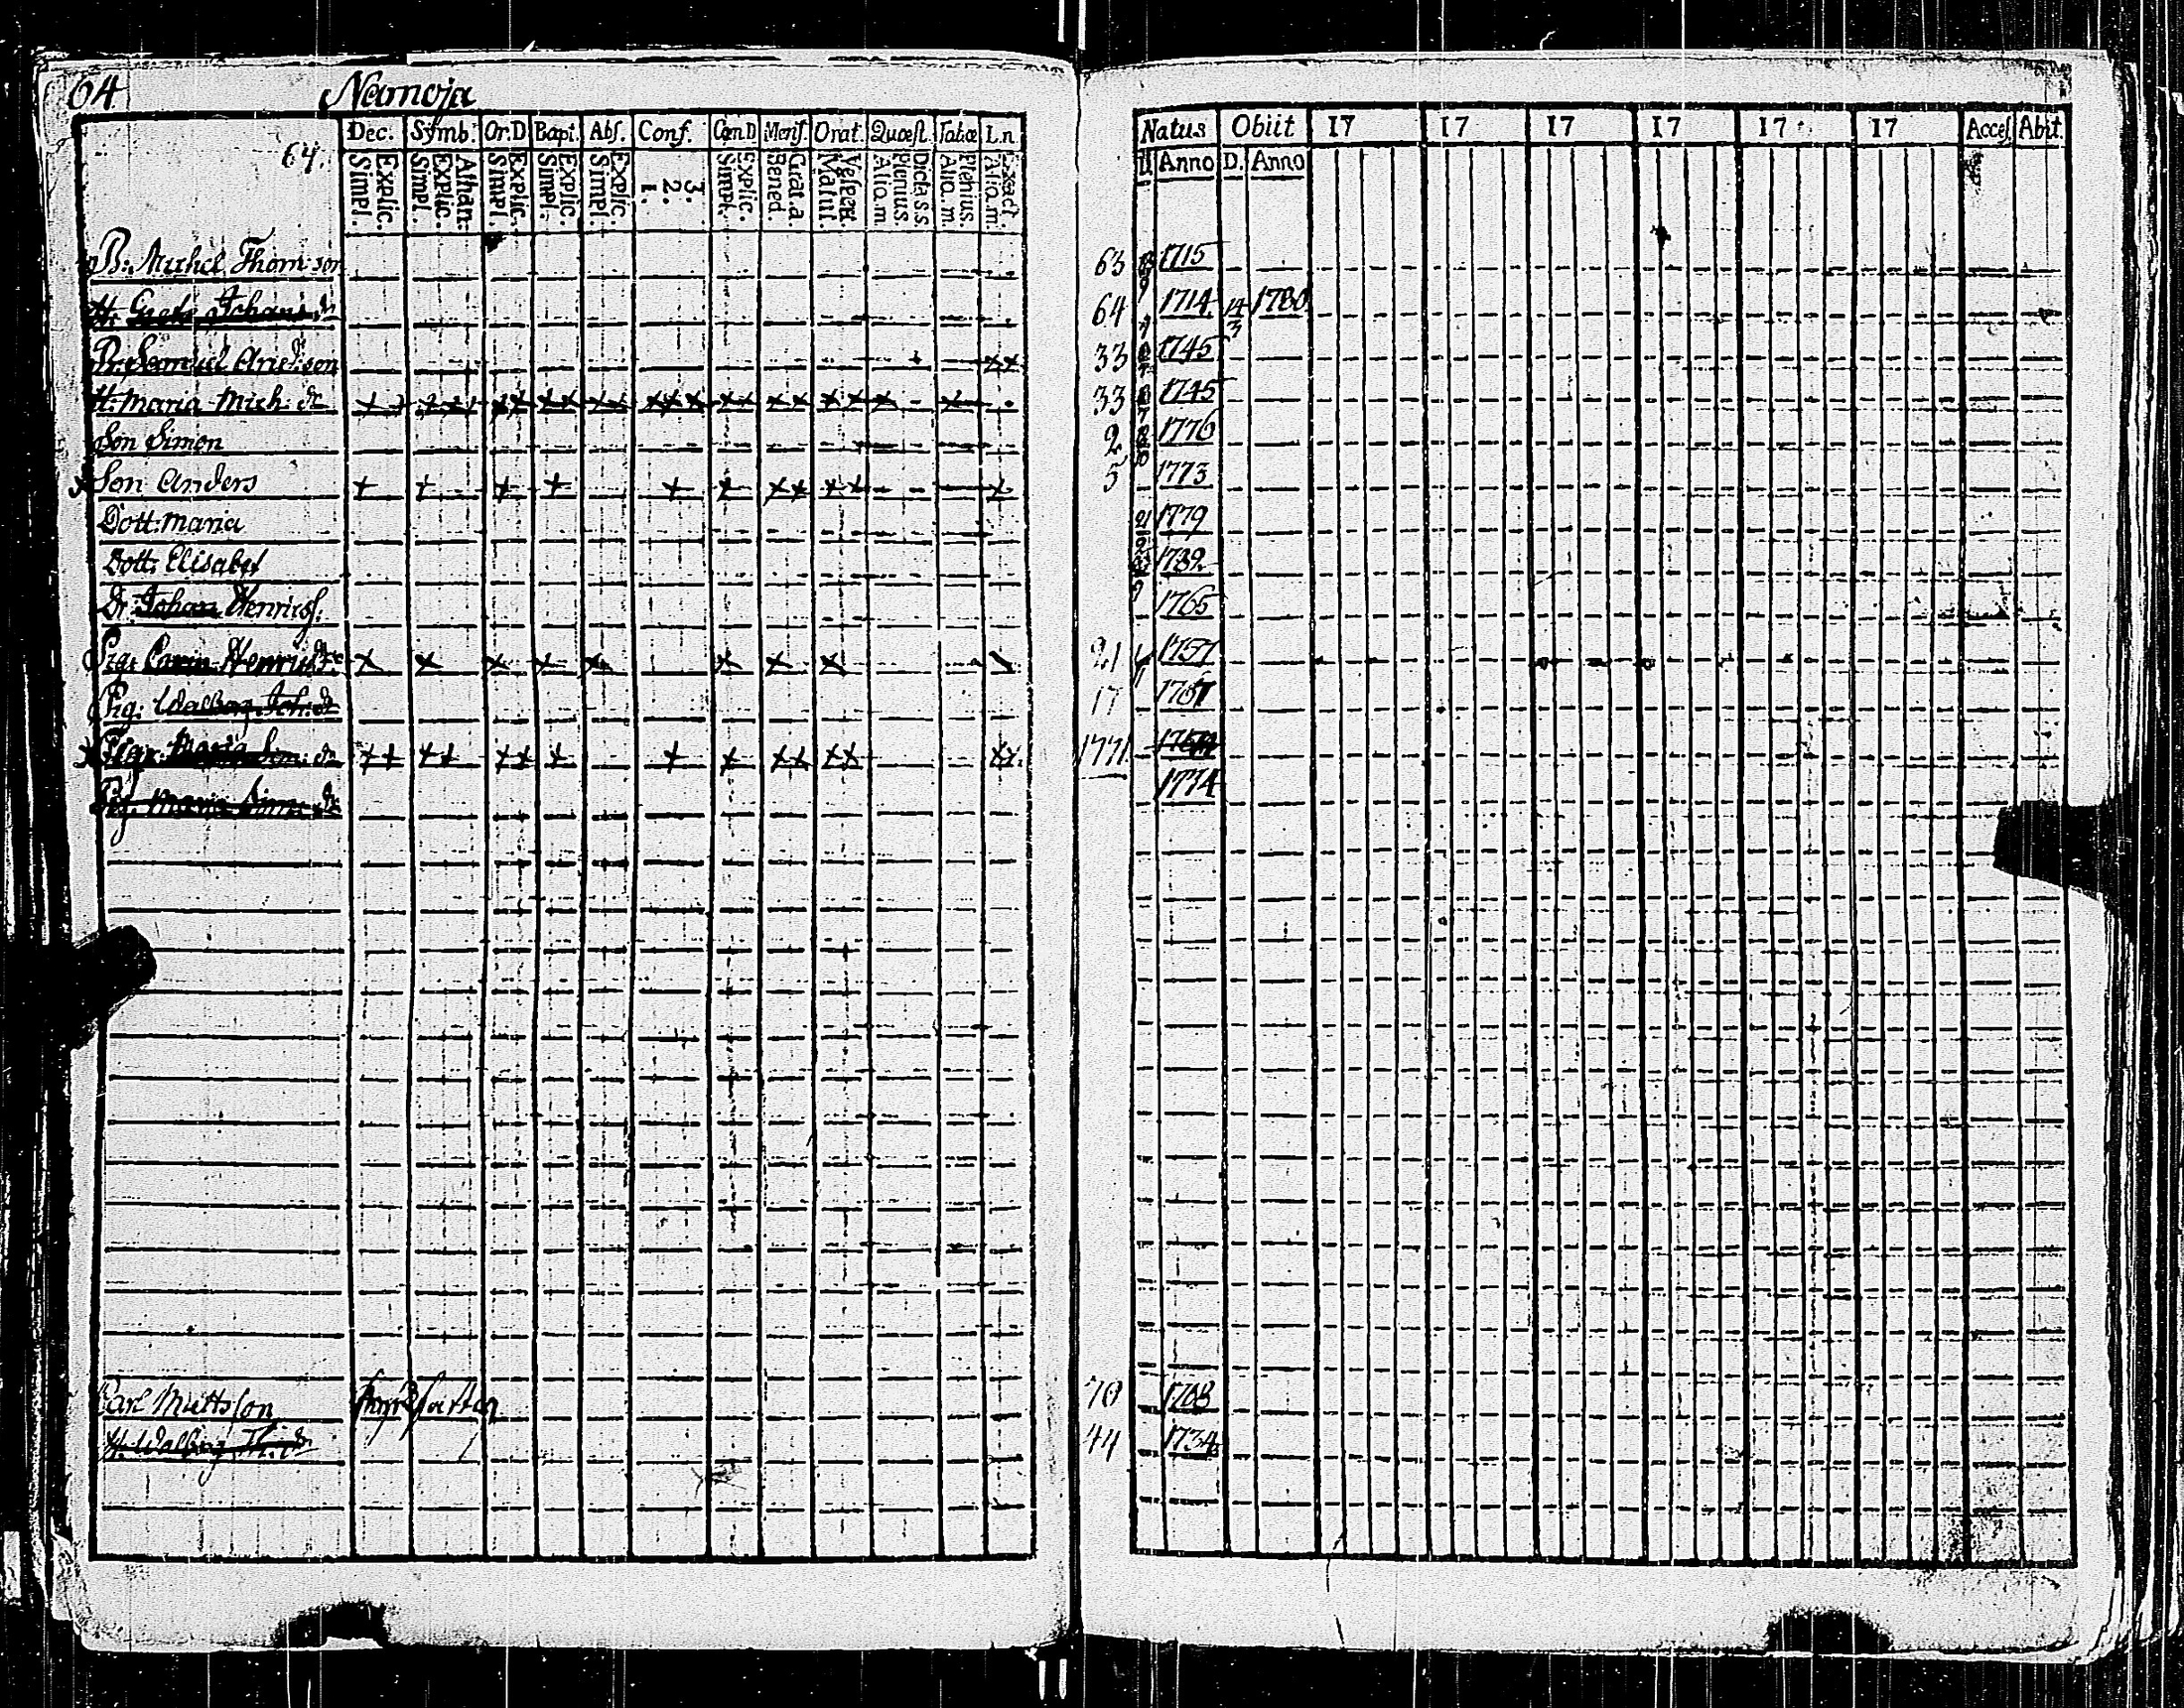 64 Namoja
Dec. Symb. Or.D Bapt. Abs. Conf. Cœn.D Mens. Orat. Quæst. Tabœ L.n
64.
Explic. Simpl. Athan. Explic. Simpl. Explic. Simpl. Explic. Simpl. Explic. Simpl. 3. 2. 1. Explic. Simpl. Grat.a Bened. Vespert. Matut. Dicta s.s. Plenius Aliq.m. Plenius. Aliq.m. Exact. Aliq.m.
B: Michel Thom:son
H. Greta Johans dr
Br: Samuel And:son
H: Maria Mich: dr
Son Simon
Son Anders
Dott: Maria
Dott: Elisabet
Dr: Johan Henrics:
Pig: Carin Henrics dr
Pig: Walborg Joh: dr
Pig: Maria Sim: dr
Pig. Maria Sim: dr
Carl Mattsson
H. Walborg Th: dr
Natus Obiit 17 17 17 17 17 17 Acces. Abiit.
D. Anno D. Anno
63 1715
64 1714 14/3 1780
33 1745
33 1745
2 1776
5 1773
1779
1782
1765
21 1757
17 1761
1771
1774
70 1708
44 1734